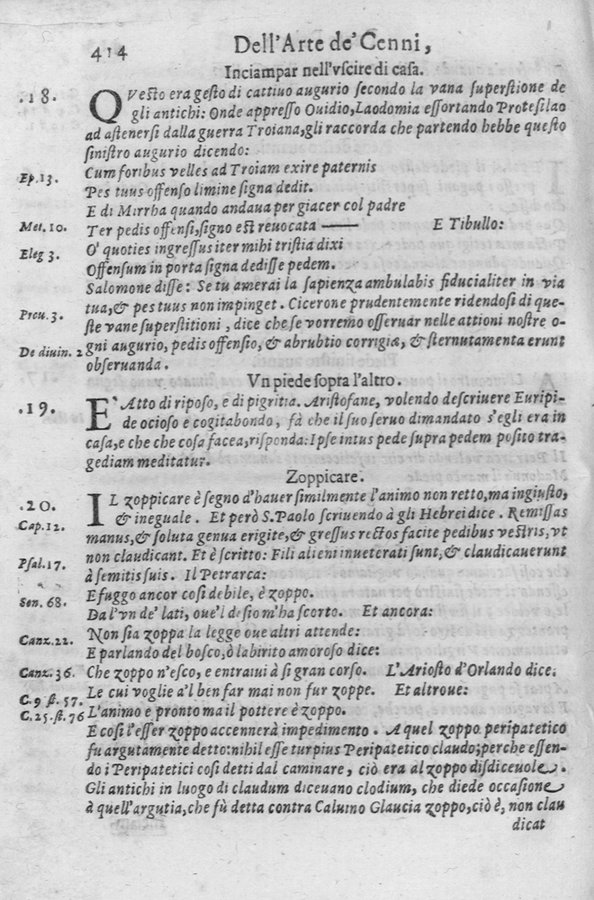 414 Dell'Arte de' Cenni,
Inciampar nell'vscire di casa.
.18. QVesto era gesto di cattiuo augurio secondo la vana superstione de
gli antichi: Onde appresso Ouidio, Laodomia essortando Protesilao
ad astenersi dalla guerra Troiana, gli raccorda che partendo hebbe questo
sinistro augurio dicendo:
Ep. 13. Cum foribus velles ad Troiam exire paternis
Pes tuus offenso limine signa dedit.
E di Mirrha quando andaua per giacer col padre
Met. 10. Ter pedis offensi, signo est reuocata —— E Tibullo:
Eleg 3. O' quoties ingressus iter mihi tristia dixi
Offensum in porta signa dedisse pedem.
Salomone disse: Se tu amerai la sapienza ambulabis fiducialiter in via
Prou. 3. tua, & pes tuus non impinget. Cicerone prudentemente ridendosi di que-
ste vane superstitioni, dice che se vorremo osseruar nelle attioni nostre o-
De diuin. 2 gni augurio, pedis offensio, & abrubtio corrigiæ, & sternutamenta erunt
obseruanda.
Vn piede sopra l'altro.
.19. E' Atto di riposo, e di pigritia. Aristofane, volendo descriuere Euripi-
de ocioso e cogitabondo, fà che il suo seruo dimandato s'egli era in
casa, e che che cosa facea, risponda: Ipse intus pede supra pedem posito tra-
gediam meditatur.
Zoppicare.
.20. IL zoppicare è segno d'hauer similmente l'animo non retto, ma ingiusto,
Cap. 12. & ineguale. Et però S. Paolo scriuendo à gli Hebrei dice. Remissas
manus, & soluta genua erigite, & gressus rectos facite pedibus vestris, vt
Psal. 17. non claudicant. Et è scritto: Fili alieni inueterati sunt, & claudicauerunt
à semitis suis. Il Petrarca:
E fuggo ancor così debile, è zoppo.
Son. 68. Dal'vn de' lati, oue'l desio m'ha scorto. Et ancora:
Canz. 22. Non sia zoppa la legge oue altri attende:
E parlando del bosco, ò labirito amoroso dice:
Canz. 36. Che zoppo n'esco, e entraiui à si gran corso. L'Ariosto d'Orlando dice.
C. 9 st. 57. Le cui voglie a'l ben far mai non fur zoppe. Et altroue:
C. 25. st. 76 L'animo e pronto ma il pottere è zoppo.
E così l'esser zoppo accennerà impedimento. A quel zoppo peripatetico
fu argutamente detto: nihil esse turpius Peripatetico claudo; perche essen-
do i Peripatetici così detti dal caminare, ciò era al zoppo disdiceuole.
Gli antichi in luogo di claudum diceuano clodium, che diede occasione
à quell'argutia, che fù detta contra Caluino Glaucia zoppo, ciò è, non clau
dicat